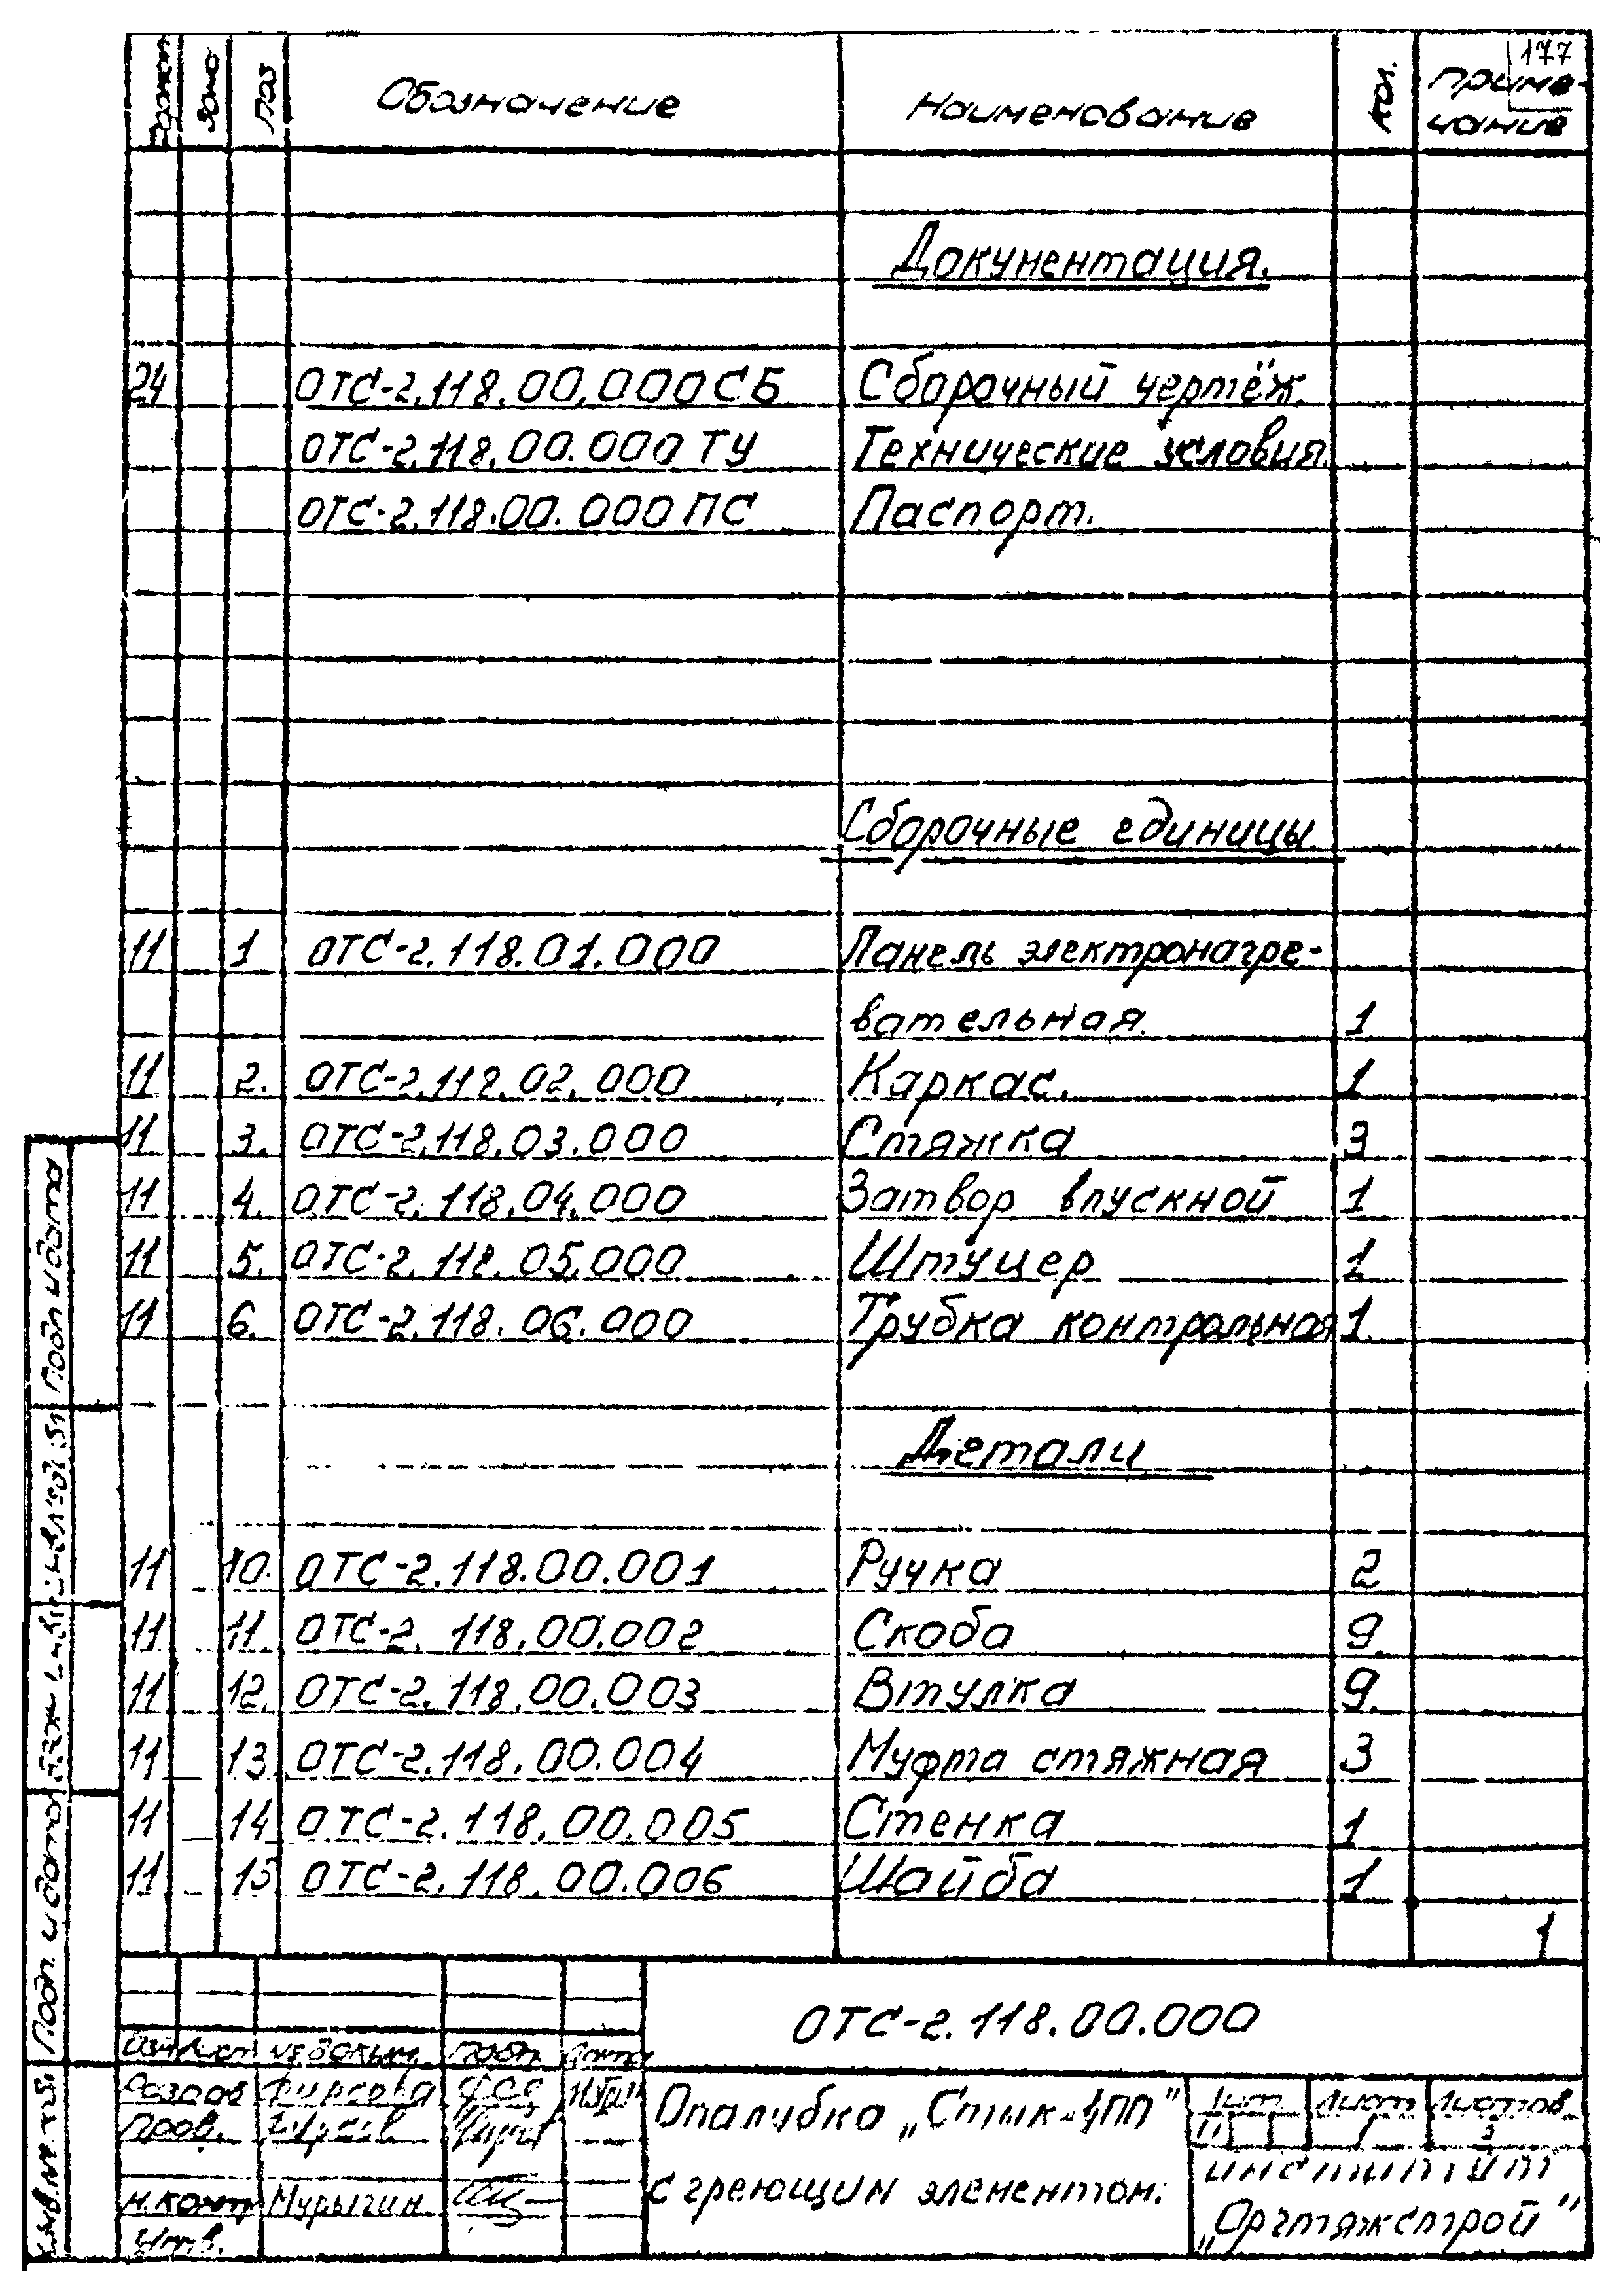 177
Формат Зона Поз Обозначение Наименование Кол. Приме-
чание
Документация.
24 ОТС-2.118.00.000 СБ Сборочный чертёж.
ОТС-2.118.00.000 ТУ Технические условия.
ОТС-2.118.00.000 ПС Паспорт.
Сборочные единицы.
11 1 ОТС-2.118.01.000 Панель электронагре-
вательная. 1
11 2. ОТС-2.118.02.000 Каркас. 1
11 3. ОТС-2.118.03.000 Стяжка 3
11 4. ОТС-2.118.04.000 Затвор впускной 1
11 5. ОТС-2.118.05.000 Штуцер 1
11 6. ОТС-2.118.06.000 Трубка контрольная 1
Детали
11 10. ОТС-2.118.00.001 Ручка 2
11 11. ОТС-2.118.00.002 Скоба 9
11 12. ОТС-2.118.00.003 Втулка 9
11 13. ОТС-2.118.00.004 Муфта стяжная 3
11 14 ОТС-2.118.00.005 Стенка 1
11 15 ОТС-2.118.00.006 Шайба 1
1
ОТС-2.118.00.000
Изм Лист № докум. Подп. Дата
Разраб Фирсова
Пров.
Н.конт Мурыгин
Утв.
Опалубка „Стык-1ПП"
с греющим элементом.
Лит. Лист Листов
1 3
институт
„Оргтяжстрой"
Подп и дата
Взам инв №
Подп. и дата
Инв. № подл